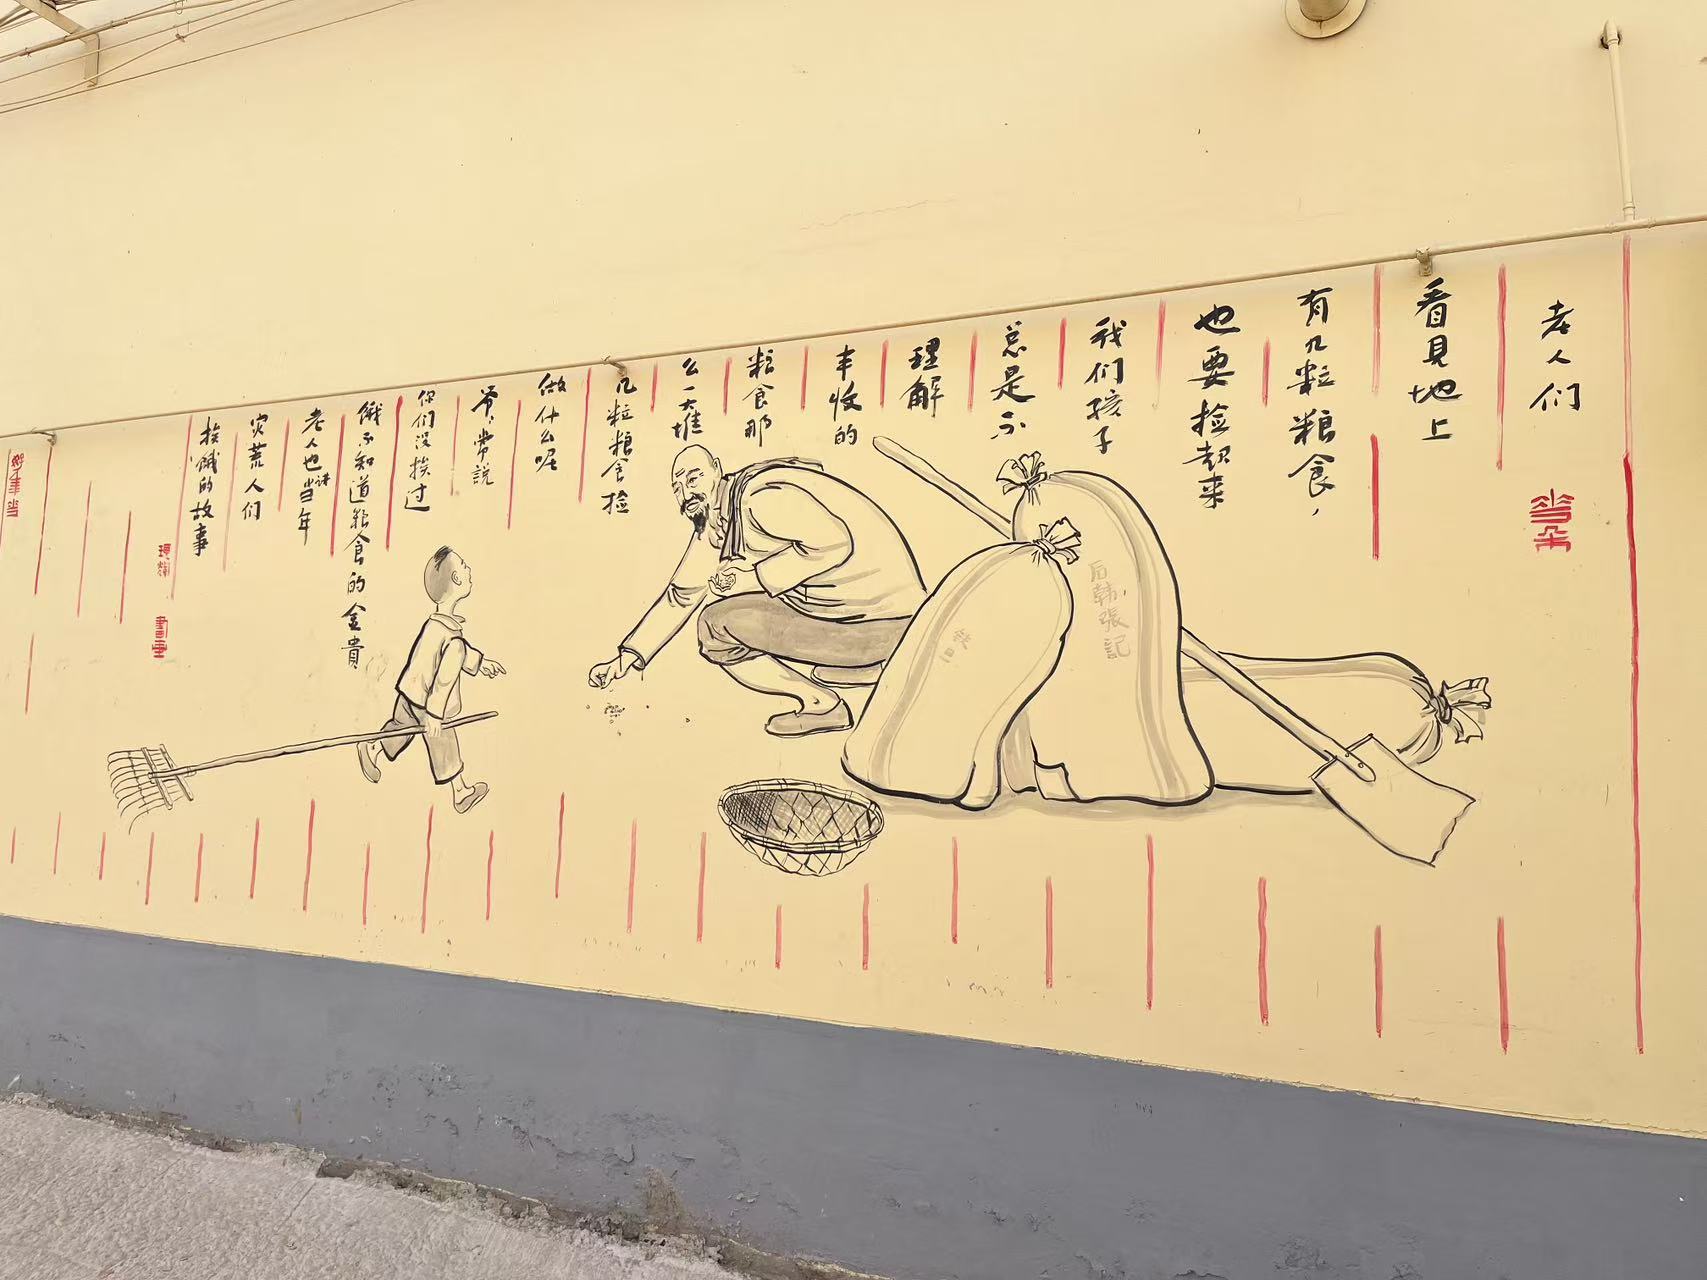 老人们
看見地上
有几粒粮食，
也要捡起来
我们孩子
总是不
理解
丰收的
粮食那
么一大堆
几粒粮食捡
做什么呢
爷爷常説
你们没挨过
餓不知道粮食的金貴
老人也讲当年
灾荒人们
挨餓的故事
后韩張記